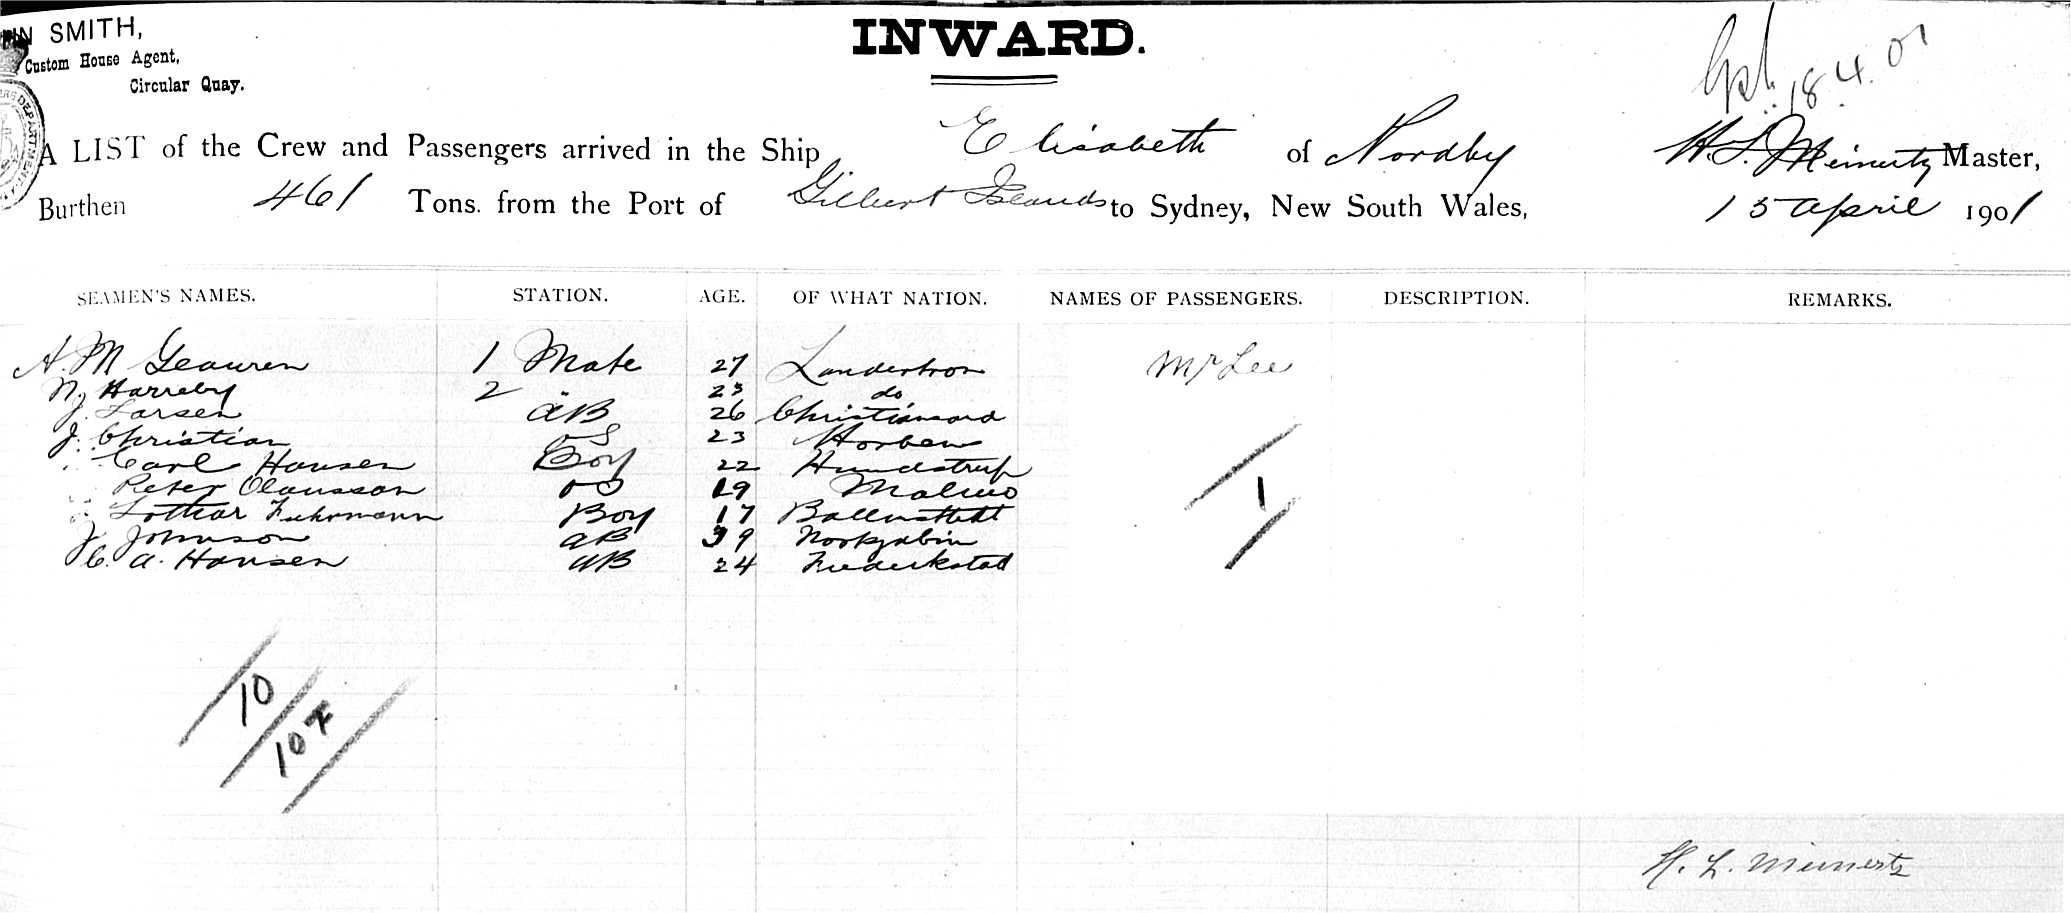 SMITH,
Custom House Agent,
Circular Quay.
INWARD.
18.4.01
A LIST of the Crew and Passengers arrived in the Ship Elisabeth of Nordby H. L. Meinertz Master,
Burthen 461 Tons. from the Port of Gilbert Islands to Sydney, New South Wales, 15 April 1901
SEAMEN'S NAMES. STATION. AGE. OF WHAT NATION. NAMES OF PASSENGERS. DESCRIPTION. REMARKS.
A. M 1 Mate 27 Mr Lee
N. Harreby 2 23 do
J. Larsen AB 26
J. Christian OS 23
Carl Hansen Boy 22 Hundstrup
Peter Olausson OS 19 Malmo
Lothar Fuhrmann Boy 17 Ballenstedt
J. Johnson AB 39
C. A. Hansen AB 24 Frederikstad
1
10
10
H. L. Meinertz